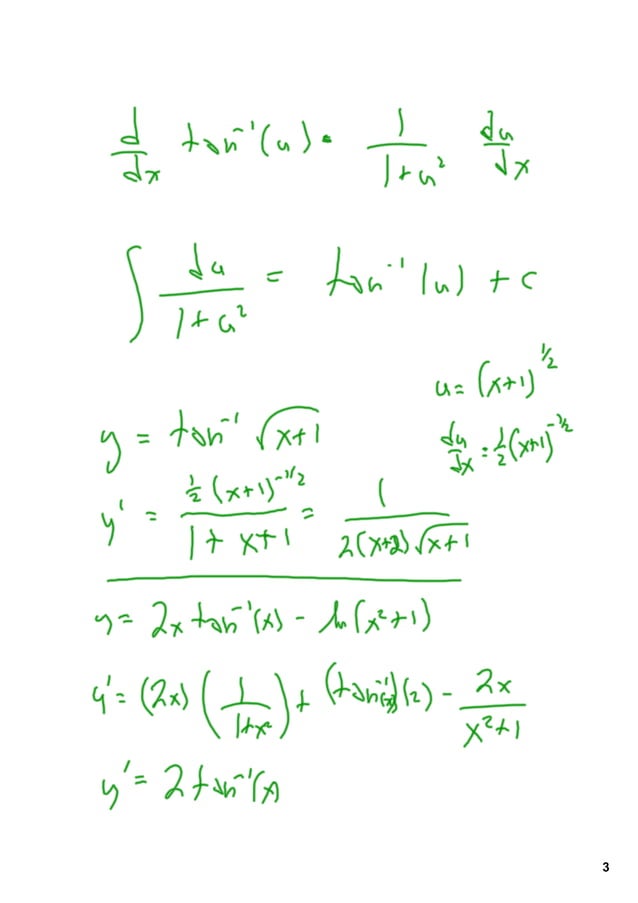 d/dx tan⁻¹(u) = 1/(1+u²) du/dx
∫ du/(1+u²) = tan⁻¹(u) + c
u = (x+1)^(1/2)
y = tan⁻¹ √(x+1)
du/dx = 1/2 (x+1)^(-1/2)
y' = (1/2 (x+1)^(-1/2))/(1 + x+1) = 1/(2(x+2)√(x+1))
y = 2x tan⁻¹(x) - ln(x²+1)
y' = (2x)(1/(1+x²)) + (tan⁻¹(x))(2) - 2x/(x²+1)
y' = 2 tan⁻¹(x)
3